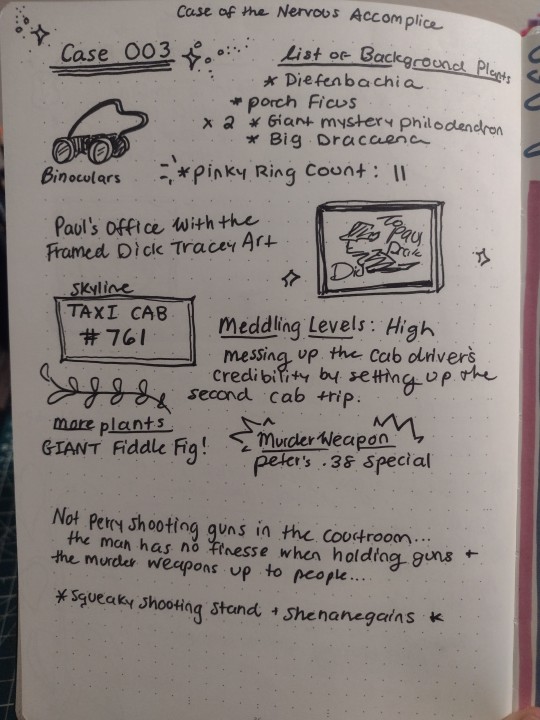 Case of the Nervous Accomplice
Case 003
List of Background Plants
* Diefenbachia
* porch Ficus
x 2 * Giant mystery philodendron
* Big Dracaena
Binoculars
* pinky Ring Count: 11
Paul's Office With the
Framed Dick Tracey Art
To
Paul
Dick
skyline
TAXI CAB
# 761
Meddling Levels: High
messing up the cab driver's
credibility by setting up the
second cab trip.
more plants
GIANT Fiddle Fig!
Murder Weapon
peter's .38 special
Not Perry shooting guns in the courtroom...
the man has no finesse when holding guns +
the murder weapons up to people...
* squeaky shooting stand + shenanegains *